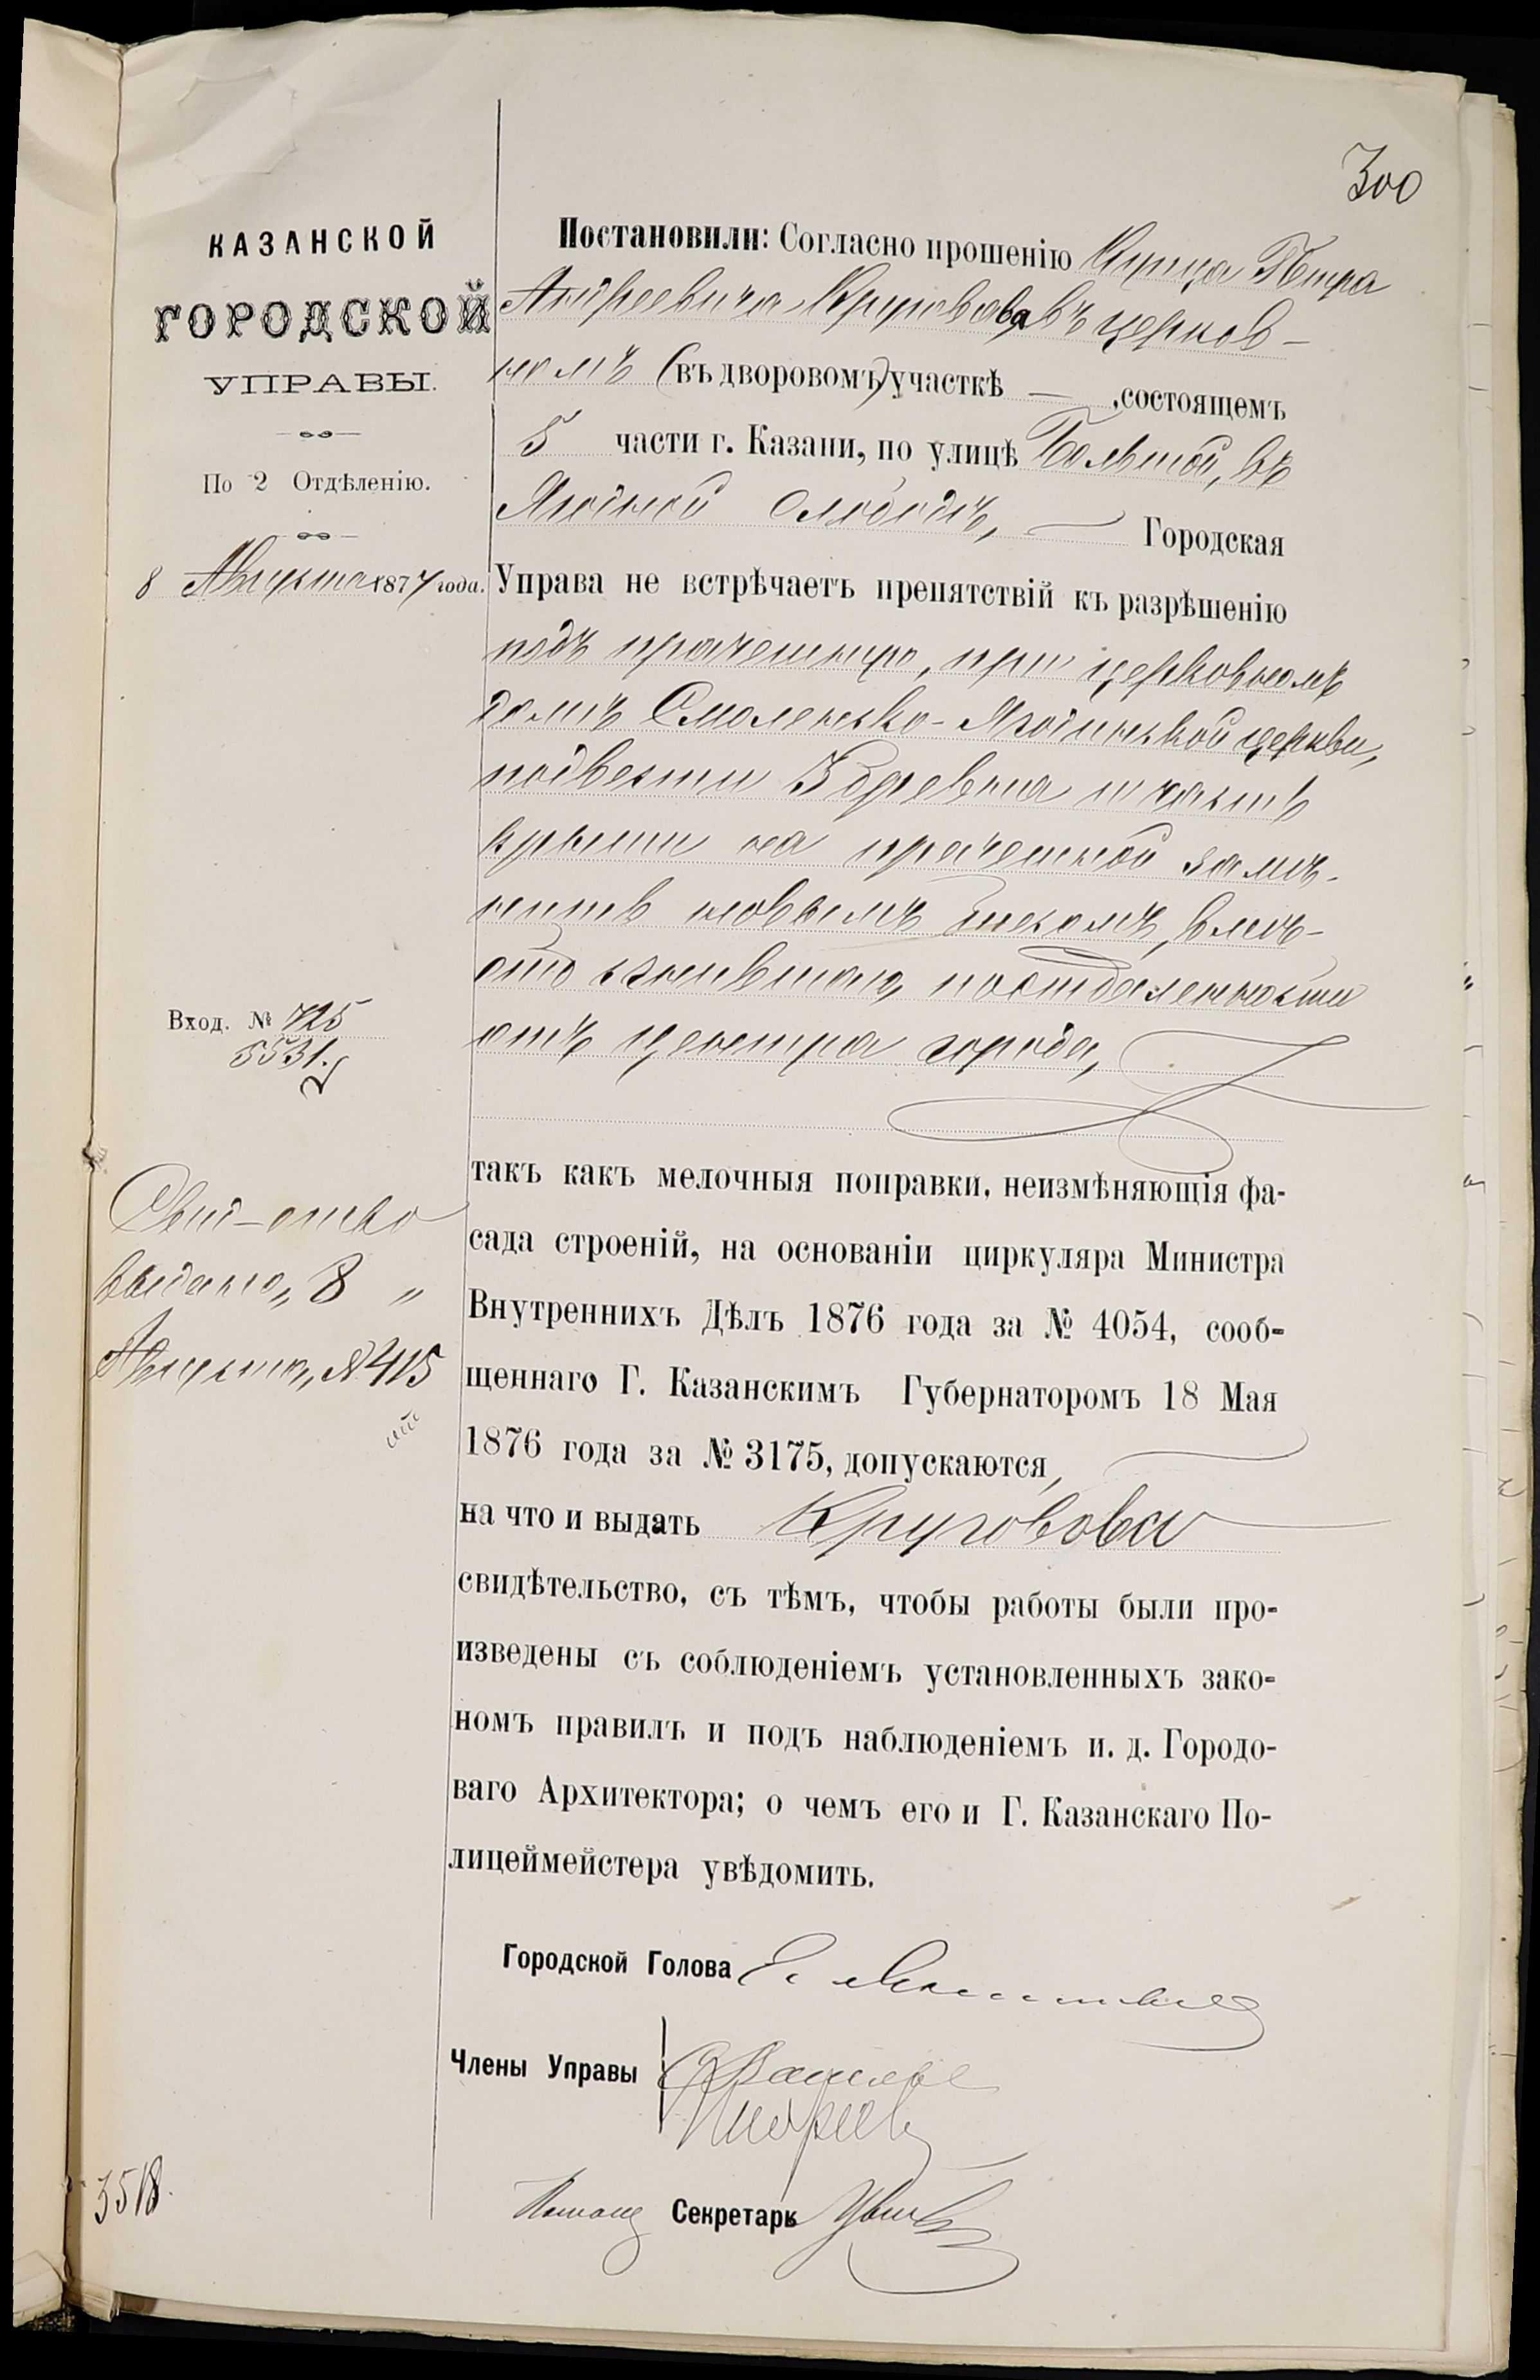 300
КАЗАНСКОЙ
ГОРОДСКОЙ
УПРАВЫ.
По 2 Отдѣленію.
8 Августа 1877 года.
Вход. № 725
5531.
Свид-ство
выдано „8 „
Августа „ № 415
3518.
Постановили: Согласно прошенію Купца Петра
Андреевича Круговова въ церков-
номъ (въ дворовомъ) участкѣ — , состоящемъ
5 части г. Казани, по улицѣ Большой, въ
Ягодной слободѣ, — Городская
Управа не встрѣчаетъ препятствій къ разрѣшенію
подъ прачешную, при церковномъ
домѣ Смоленско-Ягодинской церкви,
подвести 3 бревна и часть
крыши на прачешной замѣ-
нить новымъ тесомъ, вмѣ-
сто сгнившаго, по отдаленности
отъ центра города,
такъ какъ мелочныя поправки, неизмѣняющія фа-
сада строеній, на основаніи циркуляра Министра
Внутреннихъ Дѣлъ 1876 года за № 4054, сооб-
щеннаго Г. Казанскимъ Губернаторомъ 18 Мая
1876 года за № 3175, допускаются,
на что и выдать Круговову
свидѣтельство, съ тѣмъ, чтобы работы были про-
изведены съ соблюденіемъ установленныхъ зако-
номъ правилъ и подъ наблюденіемъ и. д. Городо-
ваго Архитектора; о чемъ его и Г. Казанскаго По-
лицеймейстера увѣдомить.
Городской Голова
Члены Управы
Секретарь